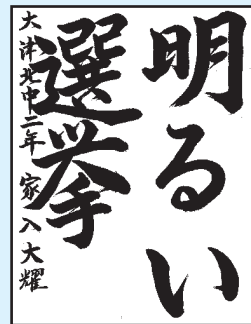 明るい
選挙
大津北中二年 家入大耀